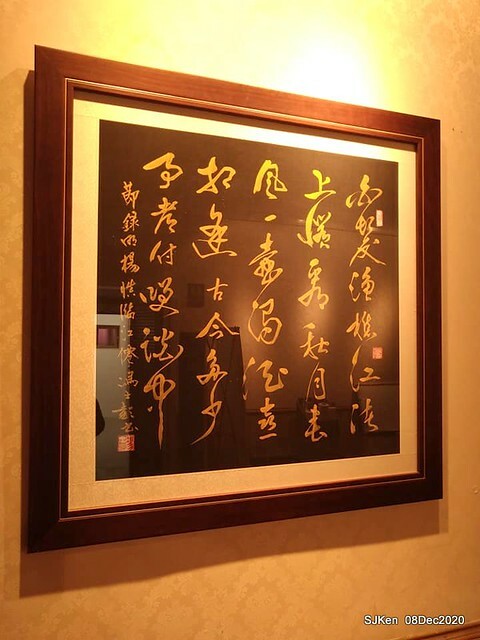 白髮漁樵江渚
上慣看秋月春
風一壺濁酒喜
相逢古今多少
事都付笑談中
節錄明楊慎臨江僊馮書
SJKen 08Dec2020